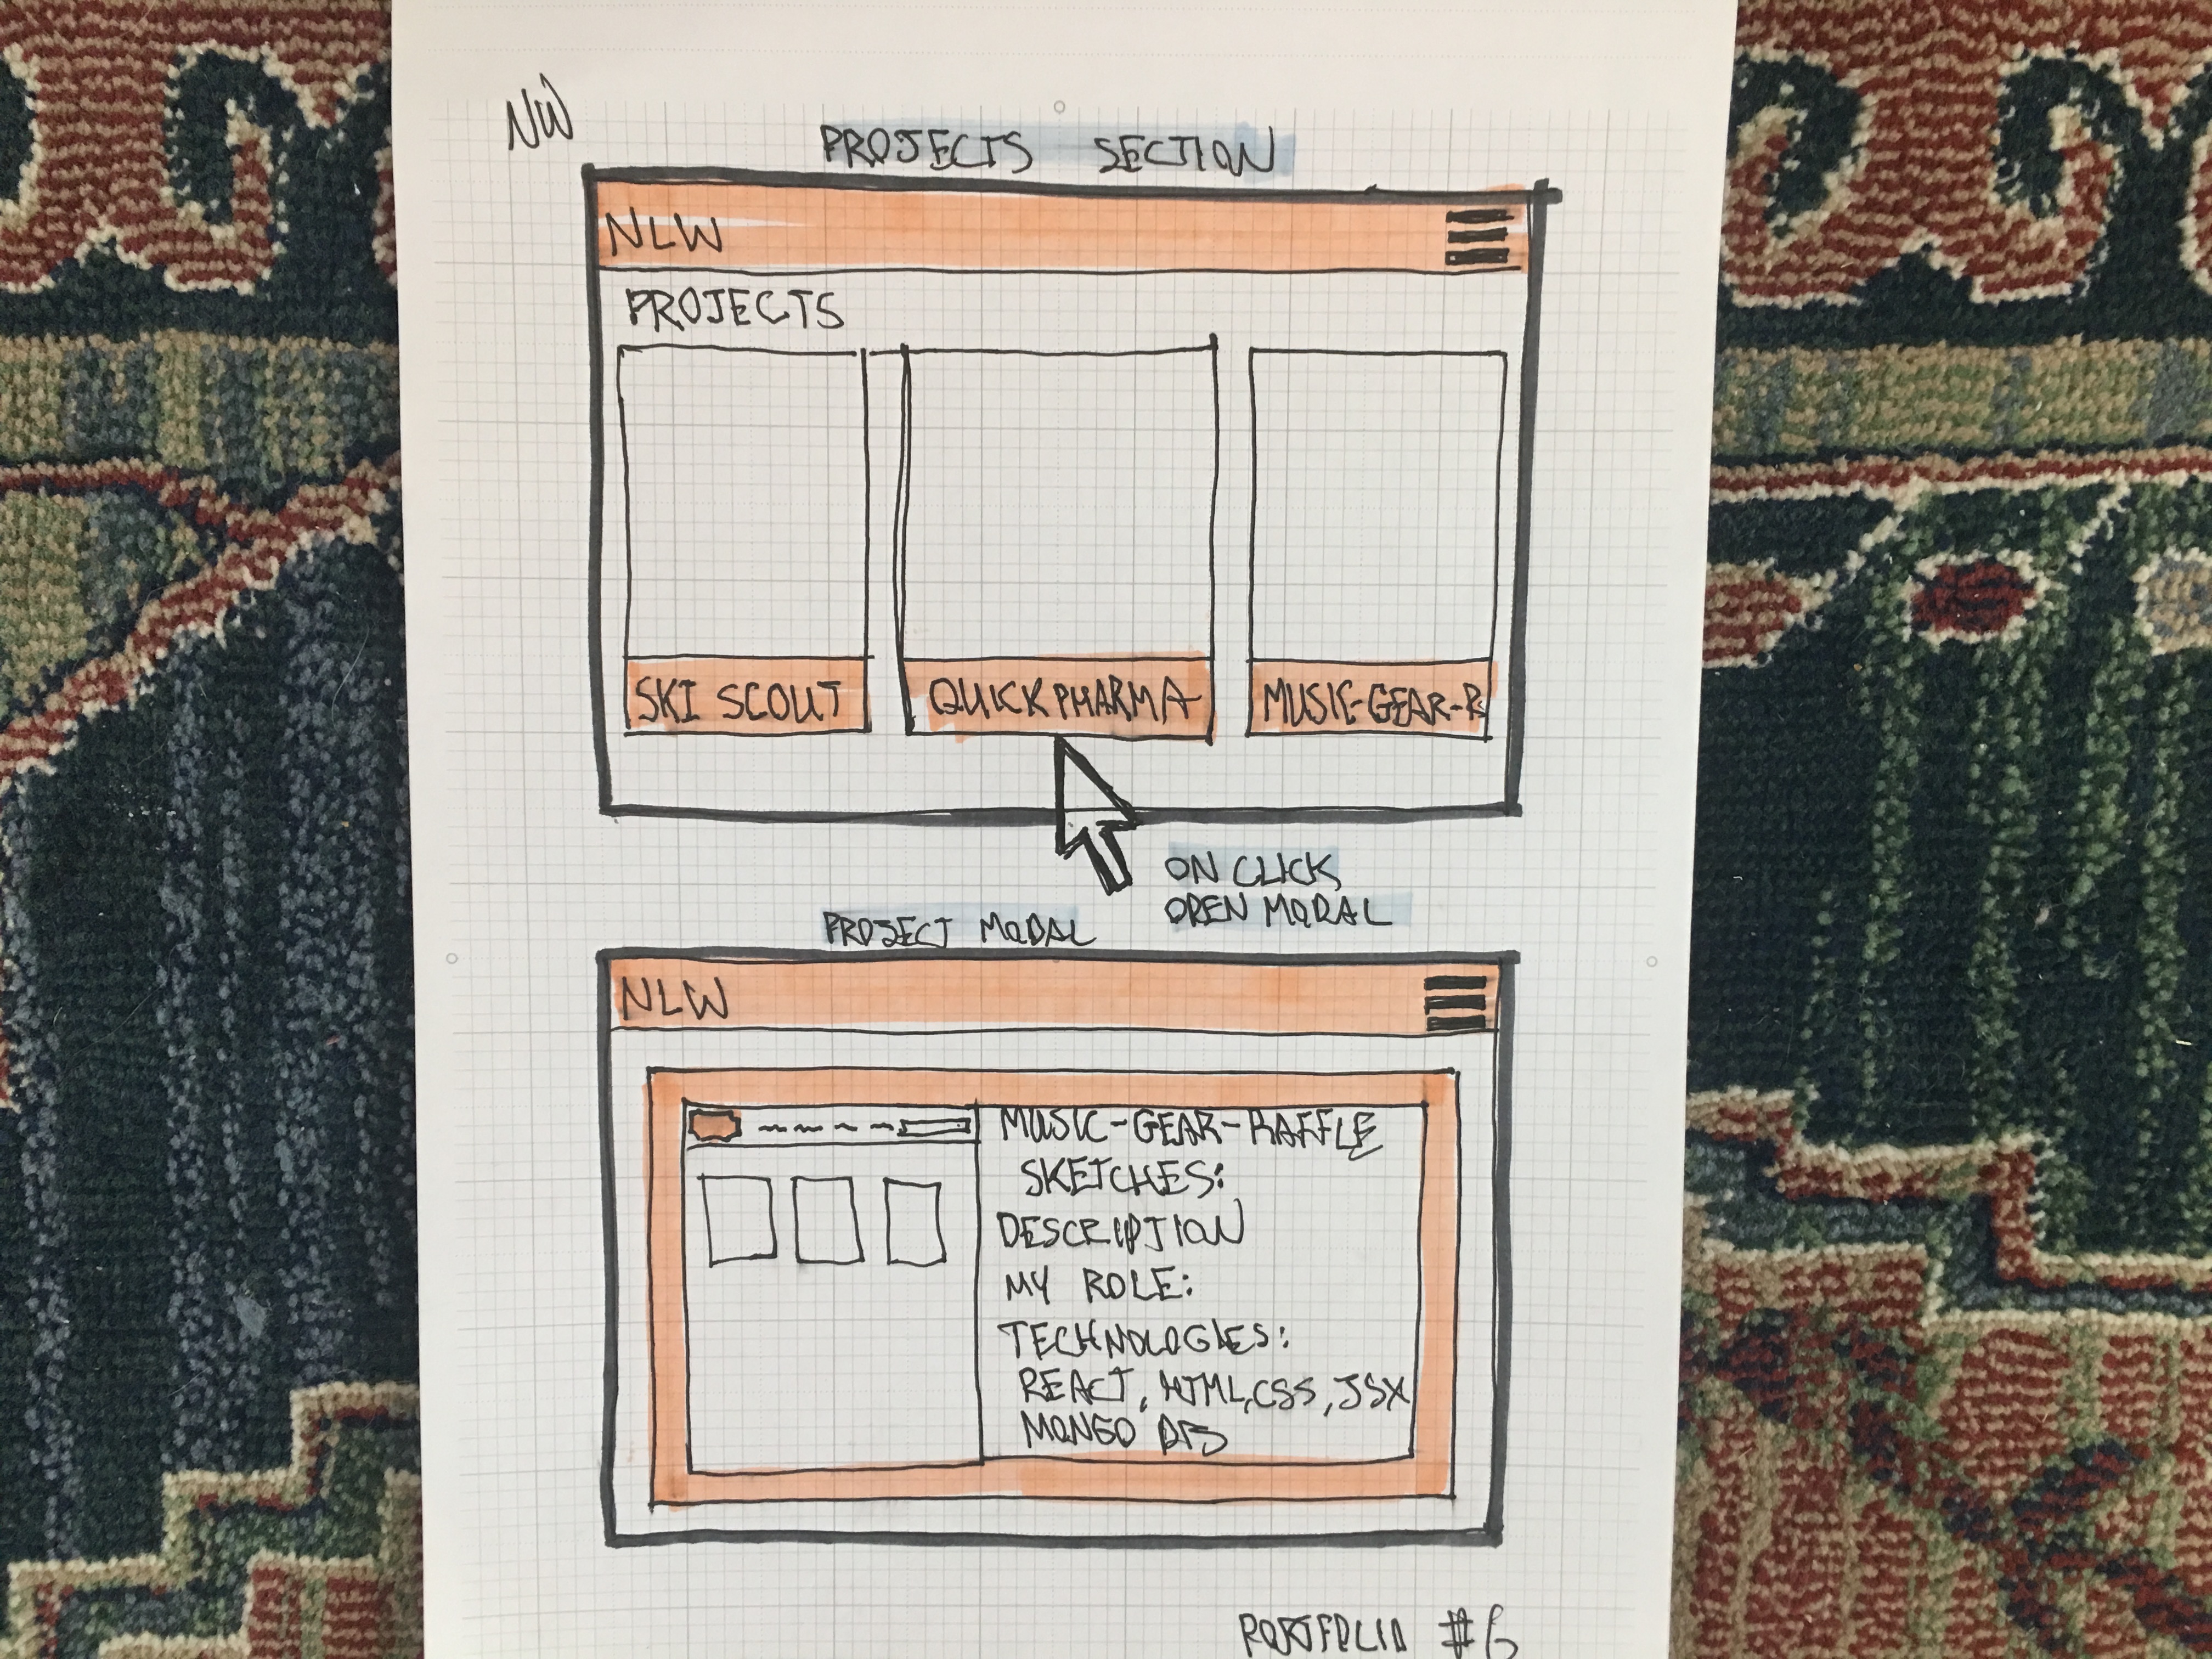 NW
PROJECTS SECTION
NLW
PROJECTS
SKI SCOUT
QUICKPHARMA
MUSIC-GEAR-R
ON CLICK
OPEN MODAL
PROJECT MODAL
NLW
MUSIC-GEAR-RAFFLE
SKETCHES:
DESCRIPTION
MY ROLE:
TECHNOLOGIES:
REACT, HTML, CSS, JSX
MONGO DB
PORTFOLIO #6